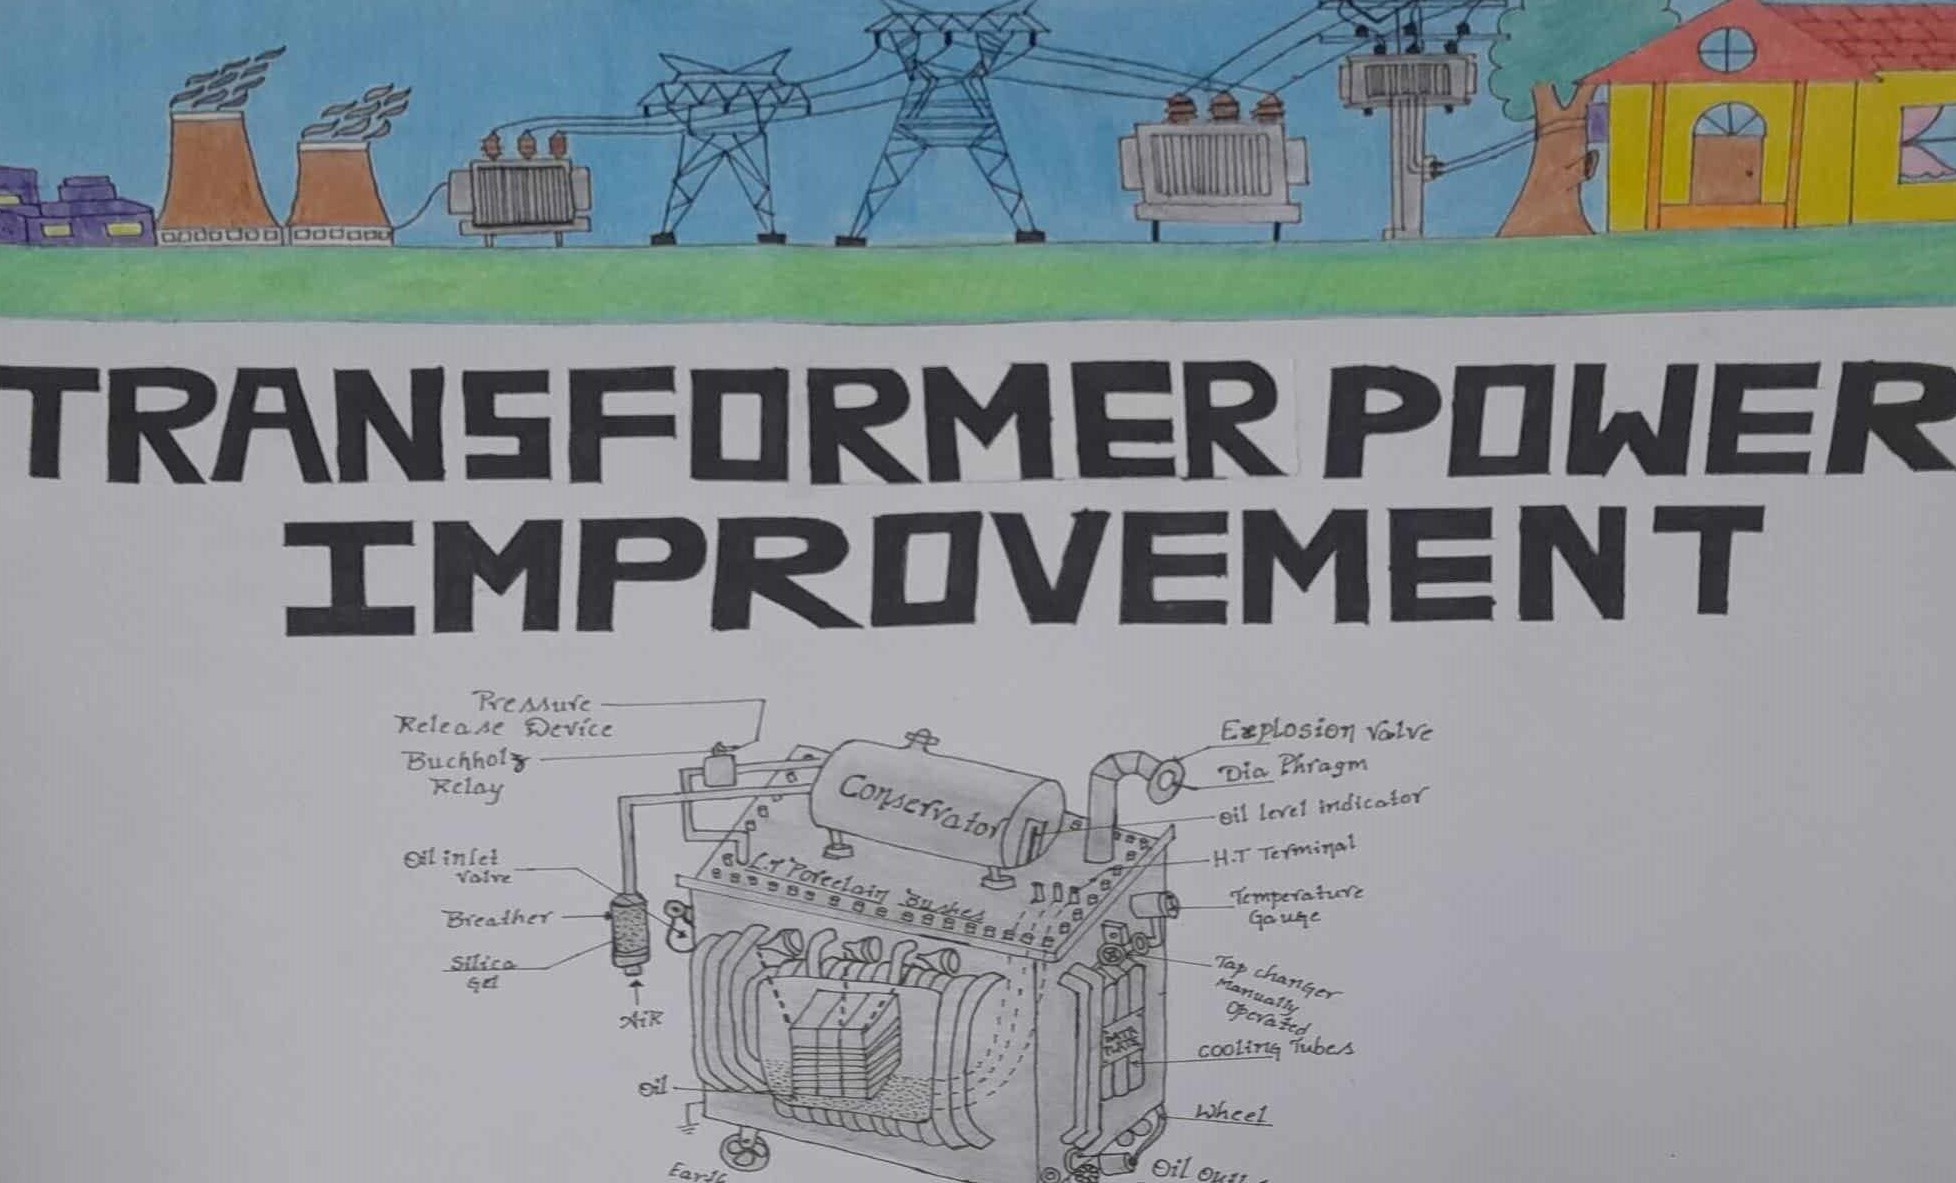 TRANSFORMER POWER
IMPROVEMENT
Pressure
Release Device
Buchholz
Relay
Oil inlet
valve
Breather
Silica
gel
AiR
Oil
Earth
Conservator
L.T Porcelain Bushes
Explosion valve
Dia Phragm
Oil level indicator
H.T Terminal
Temperature
Gauge
Tap changer
Manually
Operated
cooling Tubes
Wheel
Oil